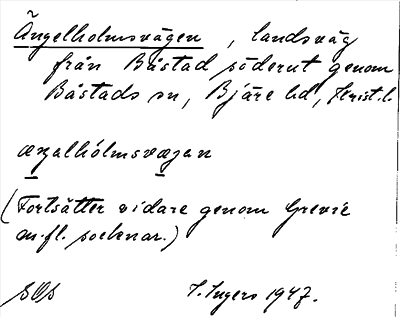 Ängelholmsvägen, landsväg
från Båstad söderut genom
Båstads sn, Bjäre hd, Krist. l.
æŋalhólmsvægan
(Fortsätter vidare genom Grevie
m. fl. socknar.)
SOS I. Ingers 1947.